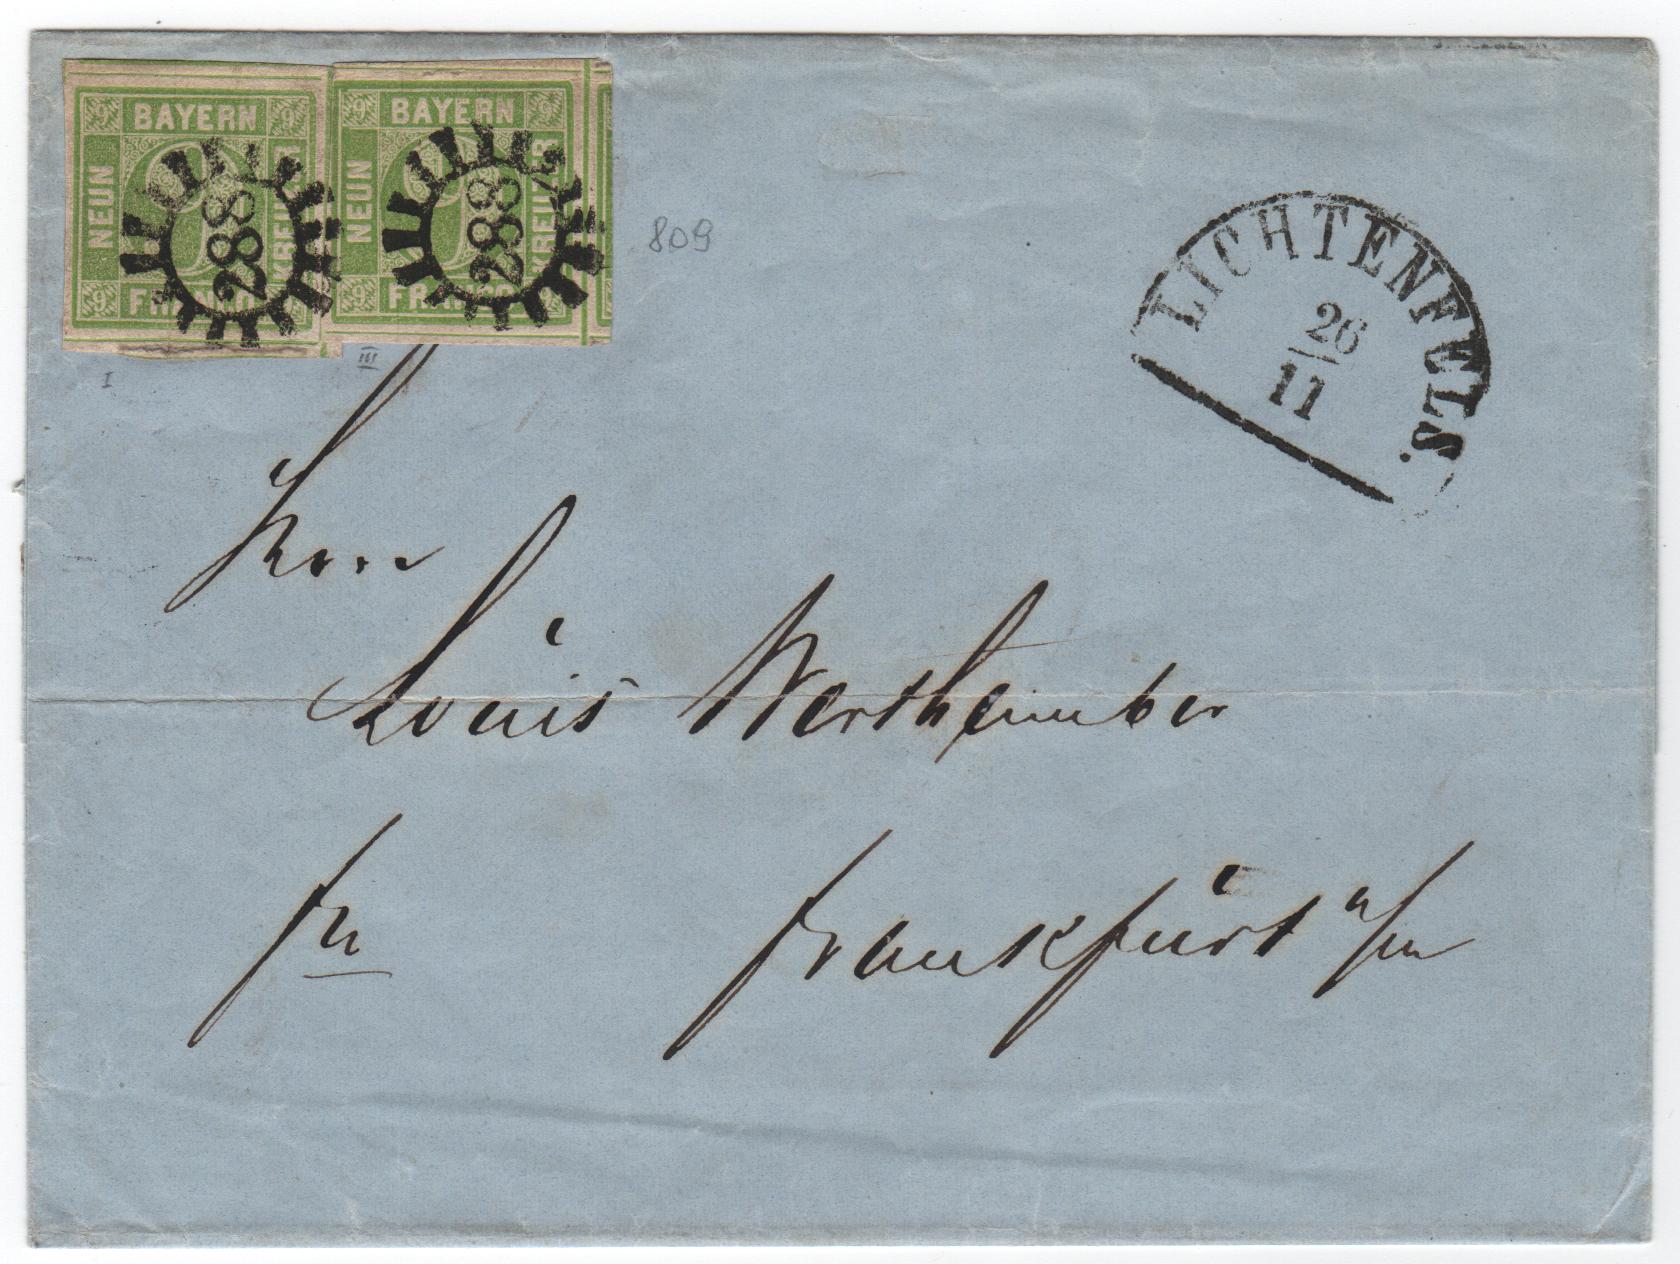 9 BAYERN 9
NEUN
KREUZER
9 FRANCO
288
9 BAYERN 9
NEUN
KREUZER
9 FRANCO 9
288
809
I
III
LICHTENFELS.
26
11
Herrn
Louis Wertheimber
fr
Frankfurt a/m